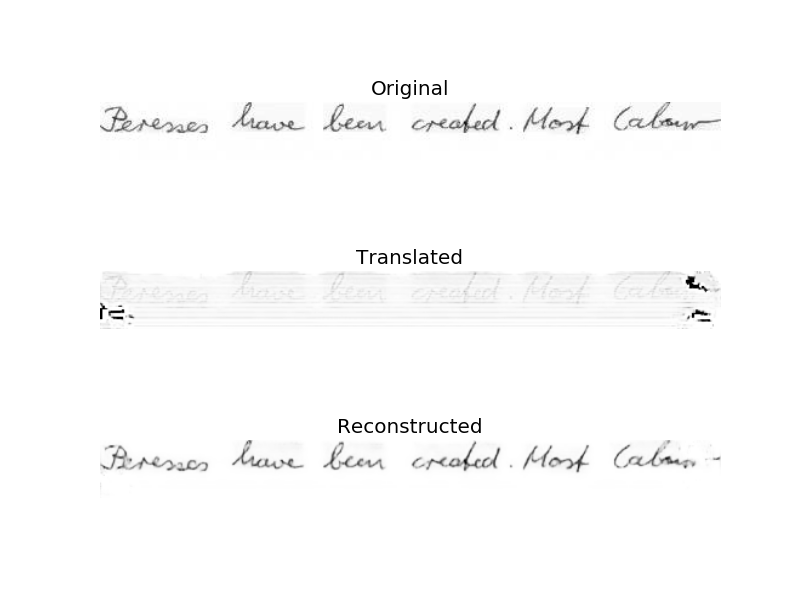 Original
Peresses have been created. Most Labour
Translated
Peresses have been created. Most Labour
Reconstructed
Peresses have been created. Most Labour